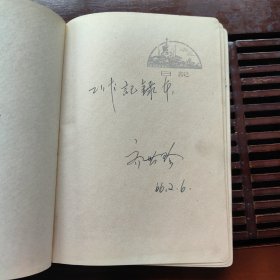 日記
工作記錄本.
66.2.6.